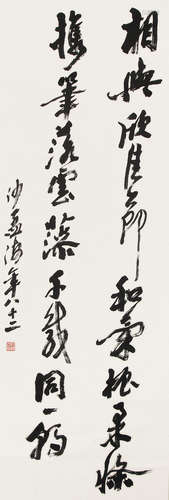 相與欣佳節和氣振柔條
攜筆落雲藻千載同一朝
沙孟海年八十二